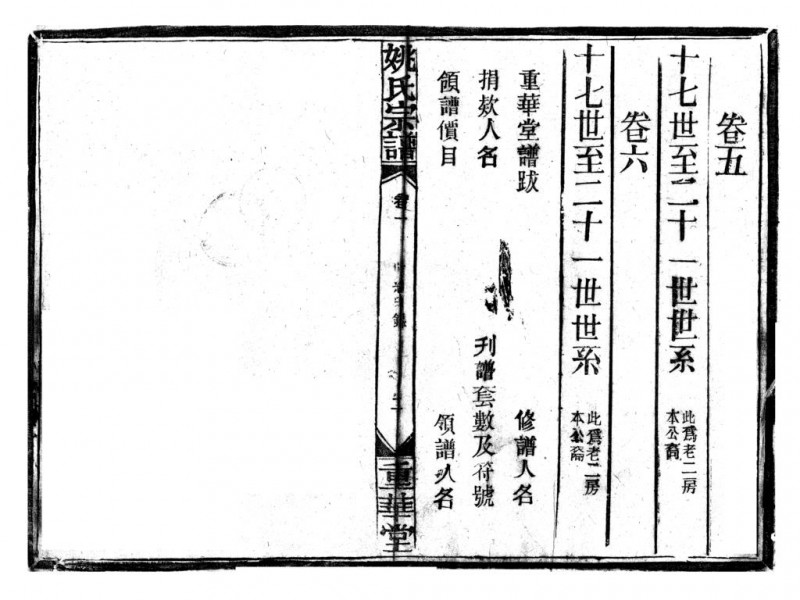 卷五
十七世至二十一世世系 此爲老二房本公裔
卷六
十七世至二十一世世系 此爲老二房本公裔
重華堂譜跋 修譜人名
捐欵人名 刋譜套數及符號
領譜價目 領譜人名
姚氏宗譜 卷一 重華堂